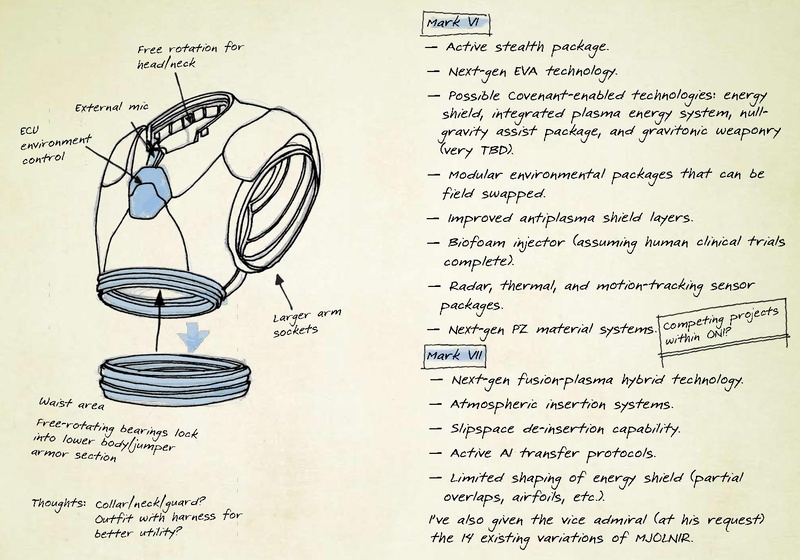 Free rotation for
head/neck
External mic
ECU
environment
control
Larger arm
sockets
Waist area
Free-rotating bearings lock
into lower body/jumper
armor section
Thoughts: Collar/neck/guard?
Outfit with harness for
better utility?
Mark VI
— Active stealth package.
— Next-gen EVA technology.
— Possible Covenant-enabled technologies: energy
shield, integrated plasma energy system, null-
gravity assist package, and gravitonic weaponry
(very TBD).
— Modular environmental packages that can be
field swapped.
— Improved antiplasma shield layers.
— Biofoam injector (assuming human clinical trials
complete).
— Radar, thermal, and motion-tracking sensor
packages.
— Next-gen PZ material systems.
Competing projects
within ONI?
Mark VII
— Next-gen fusion-plasma hybrid technology.
— Atmospheric insertion systems.
— Slipspace de-insertion capability.
— Active AI transfer protocols.
— Limited shaping of energy shield (partial
overlaps, airfoils, etc.).
I've also given the vice admiral (at his request)
the 14 existing variations of MJOLNIR.